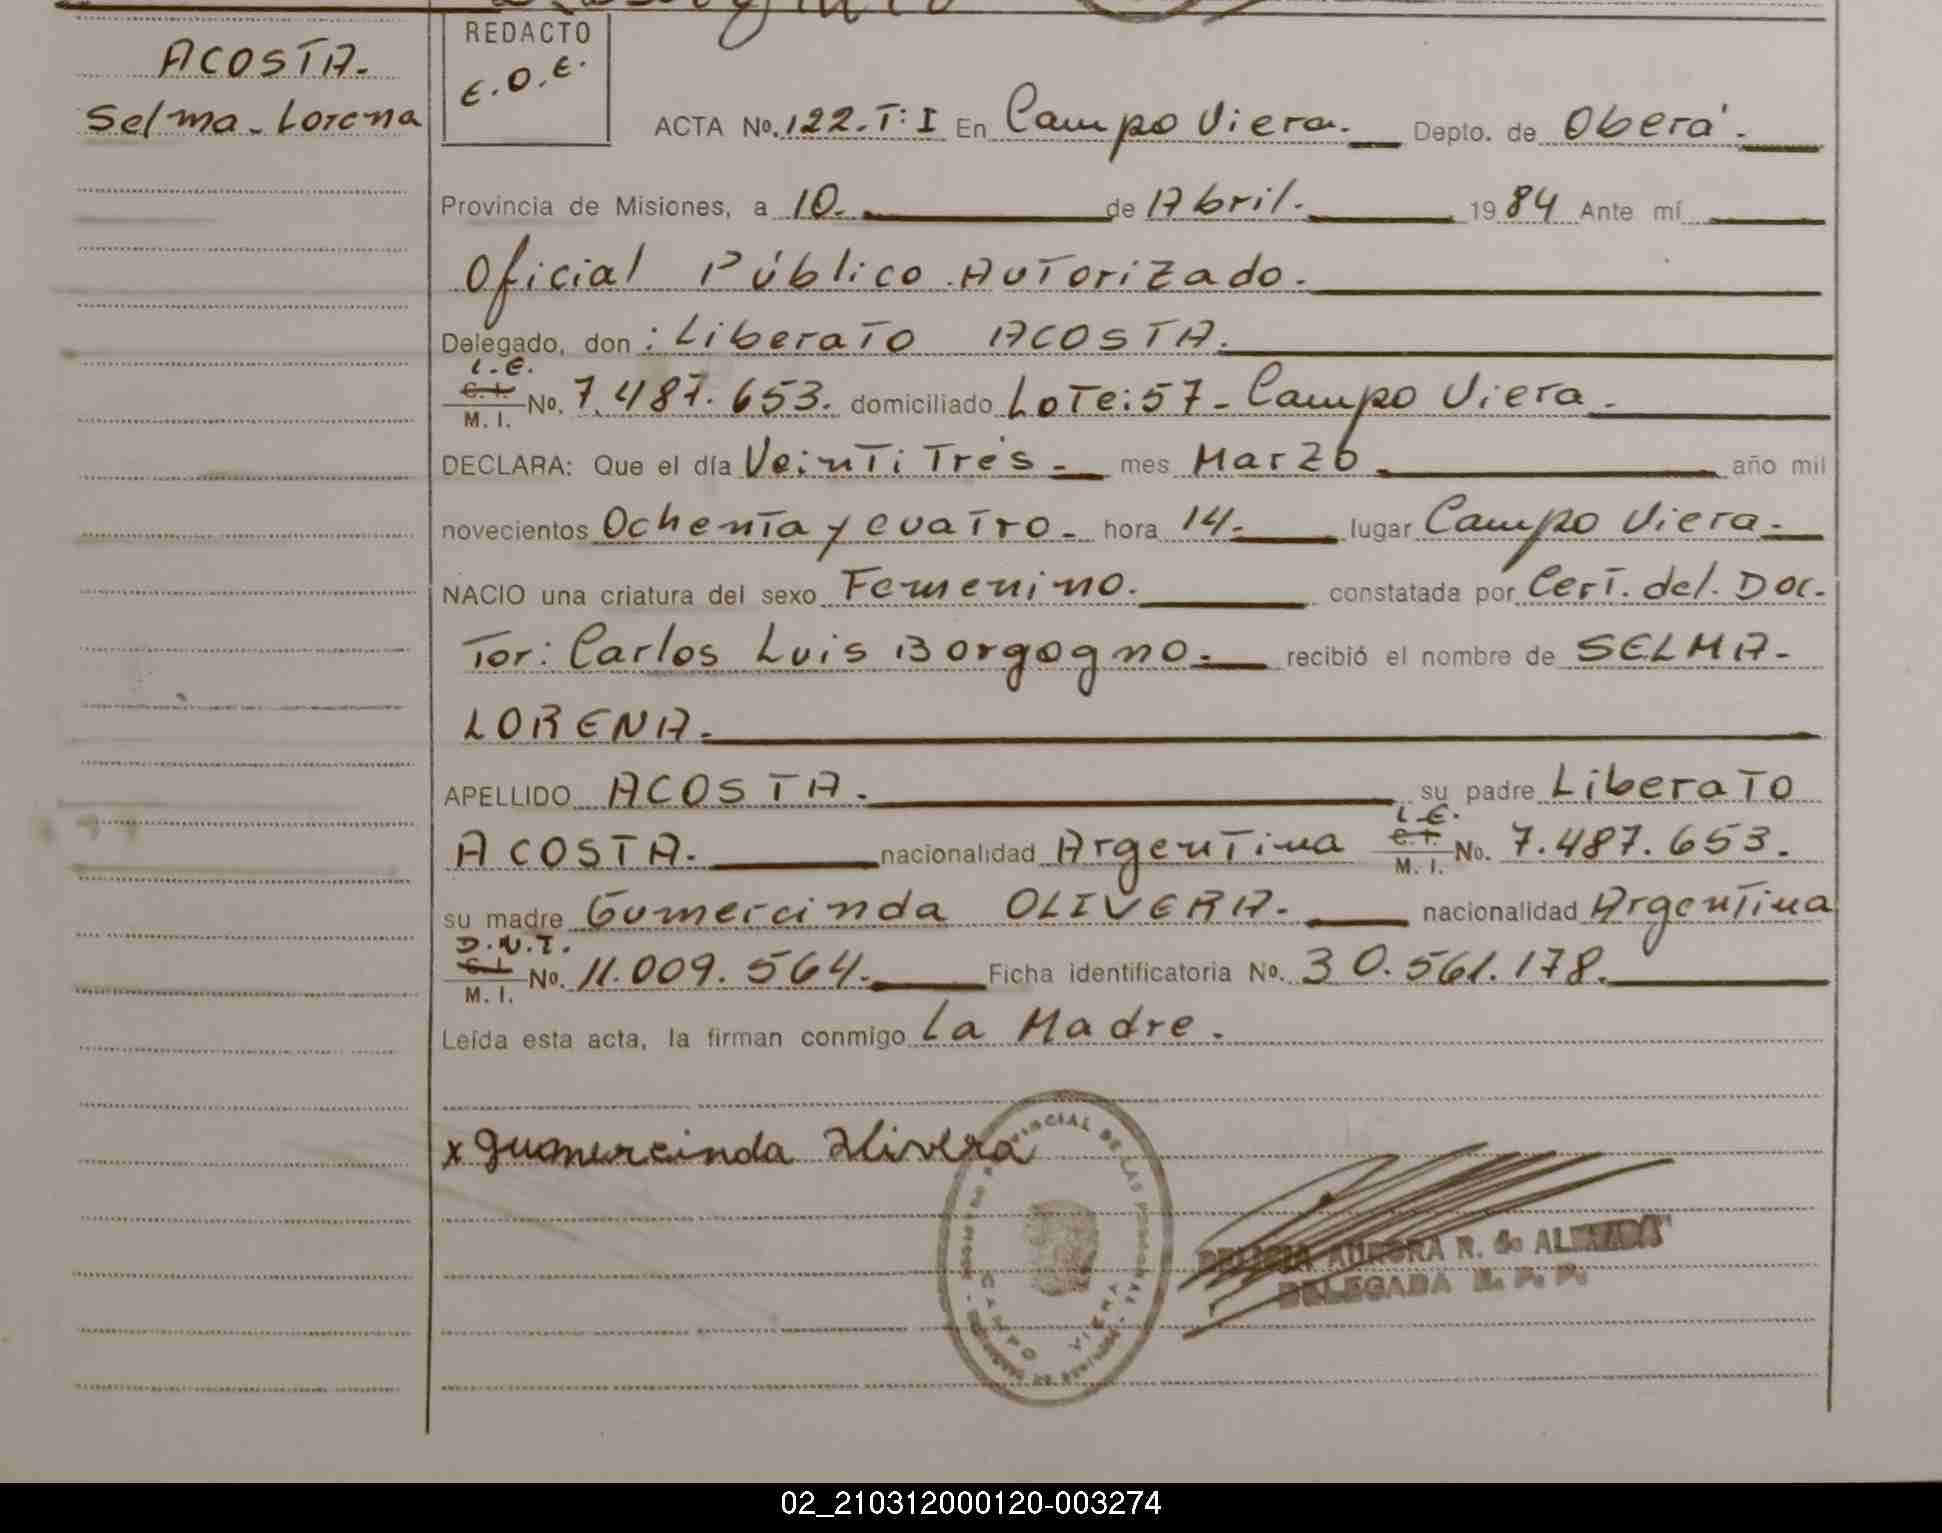 ACOSTA.
Selma. Lorena
REDACTO
E.O.E.
ACTA No. 122. T: I En Campo Viera. Depto. de Oberá.
Provincia de Misiones, a 10. de Abril. 1984 Ante mí
Oficial Público Autorizado.
Delegado, don : Liberato ACOSTA.
L.E.
C. I.
M. I. No. 7.487.653. domiciliado Lote: 57 - Campo Viera.
DECLARA: Que el día Veinti Trés. mes Marzo año mil
novecientos Ochenta y cuatro. hora 14. lugar Campo Viera.
NACIO una criatura del sexo Femenino. constatada por Cert. del. Doc.
Tor: Carlos Luis Borgogno. recibió el nombre de SELMA-
LORENA.
APELLIDO ACOSTA. su padre Liberato
L.E.
ACOSTA. nacionalidad Argentina C. I. M. I. No. 7.487.653.
su madre Gumercinda OLIVERA. nacionalidad Argentina
D.N.I.
C. I.
M. I. No. 11.009.564. Ficha identificatoria No. 30.561.178.
Leída esta acta, la firman conmigo La Madre.
x Gumercinda Olivera
PROVINCIAL DE LAS PERSONAS
CAMPO VIERA
AURORA R. de
DELEGADA R. P. P.
02_210312000120-003274